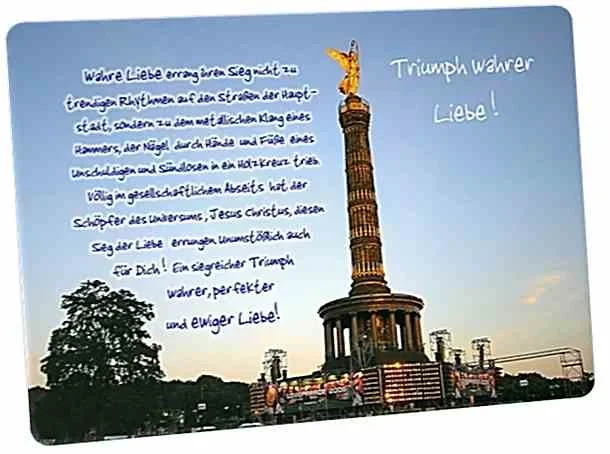 Triumph wahrer
Liebe!
Wahre Liebe errang ihren Sieg nicht zu
trendigen Rhythmen auf den Straßen der Haupt-
stadt, sondern zu dem metallischen Klang eines
Hammers, der Nägel durch Hände und Füße eines
Unschuldigen und Sündlosen in ein Holzkreuz trieb.
Völlig im gesellschaftlichem Abseits hat der
Schöpfer des Universums, Jesus Christus, diesen
Sieg der Liebe errungen. Unumstößlich auch
für Dich! Ein siegreicher Triumph
wahrer, perfekter
und ewiger Liebe!